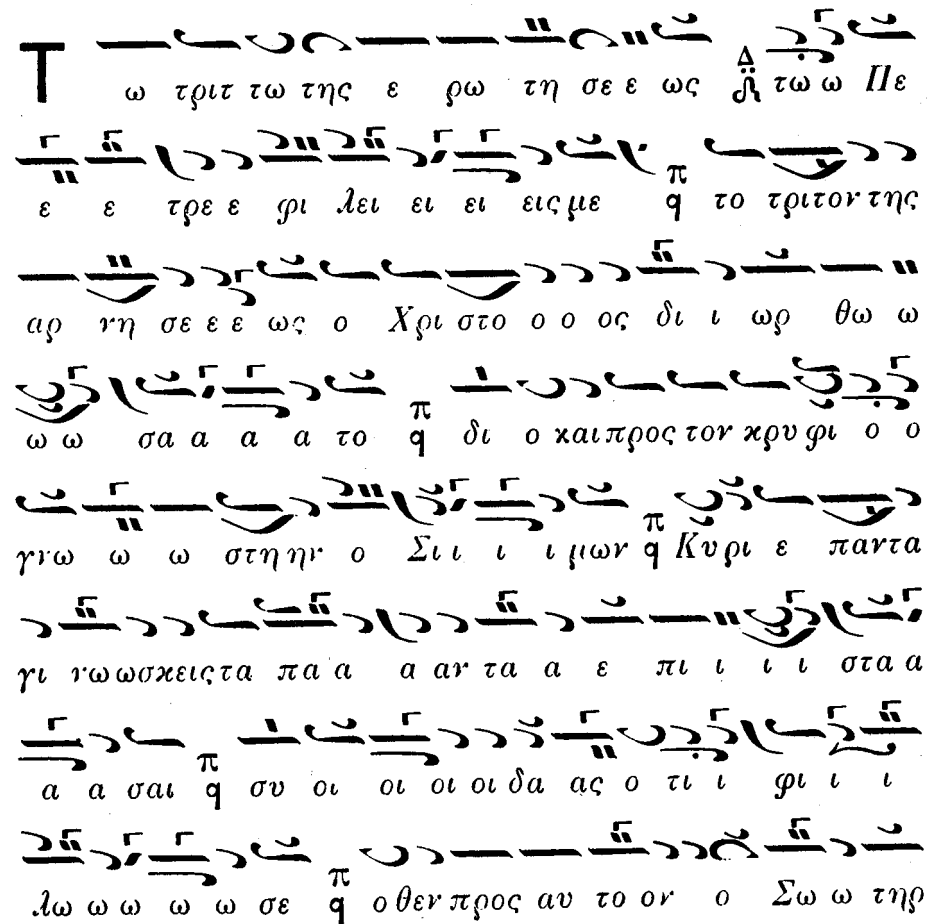 Τ ω τριτ τω της ε ρω τη σε ε ως Δ τω ω Πε
ε ε τρε ε φι λει ει ει εις με π q το τριτον της
αρ νη σε ε ε ως ο Χρι στο ο ο ος δι ι ωρ θω ω
ω ω σα α α α το π q δι ο και προς τον κρυ φι ο ο
γνω ω ω στη ην ο Σι ι ι ι μων π q Κυ ρι ε παντα
γι νω ωσκεις τα πα α α αν τα α ε πι ι ι ι στα α
α α σαι π q συ οι οι οι οι δα ας ο τι ι φι ι ι
λω ω ω ω ω σε π q ο θεν προς αυ το ον ο Σω ω τηρ